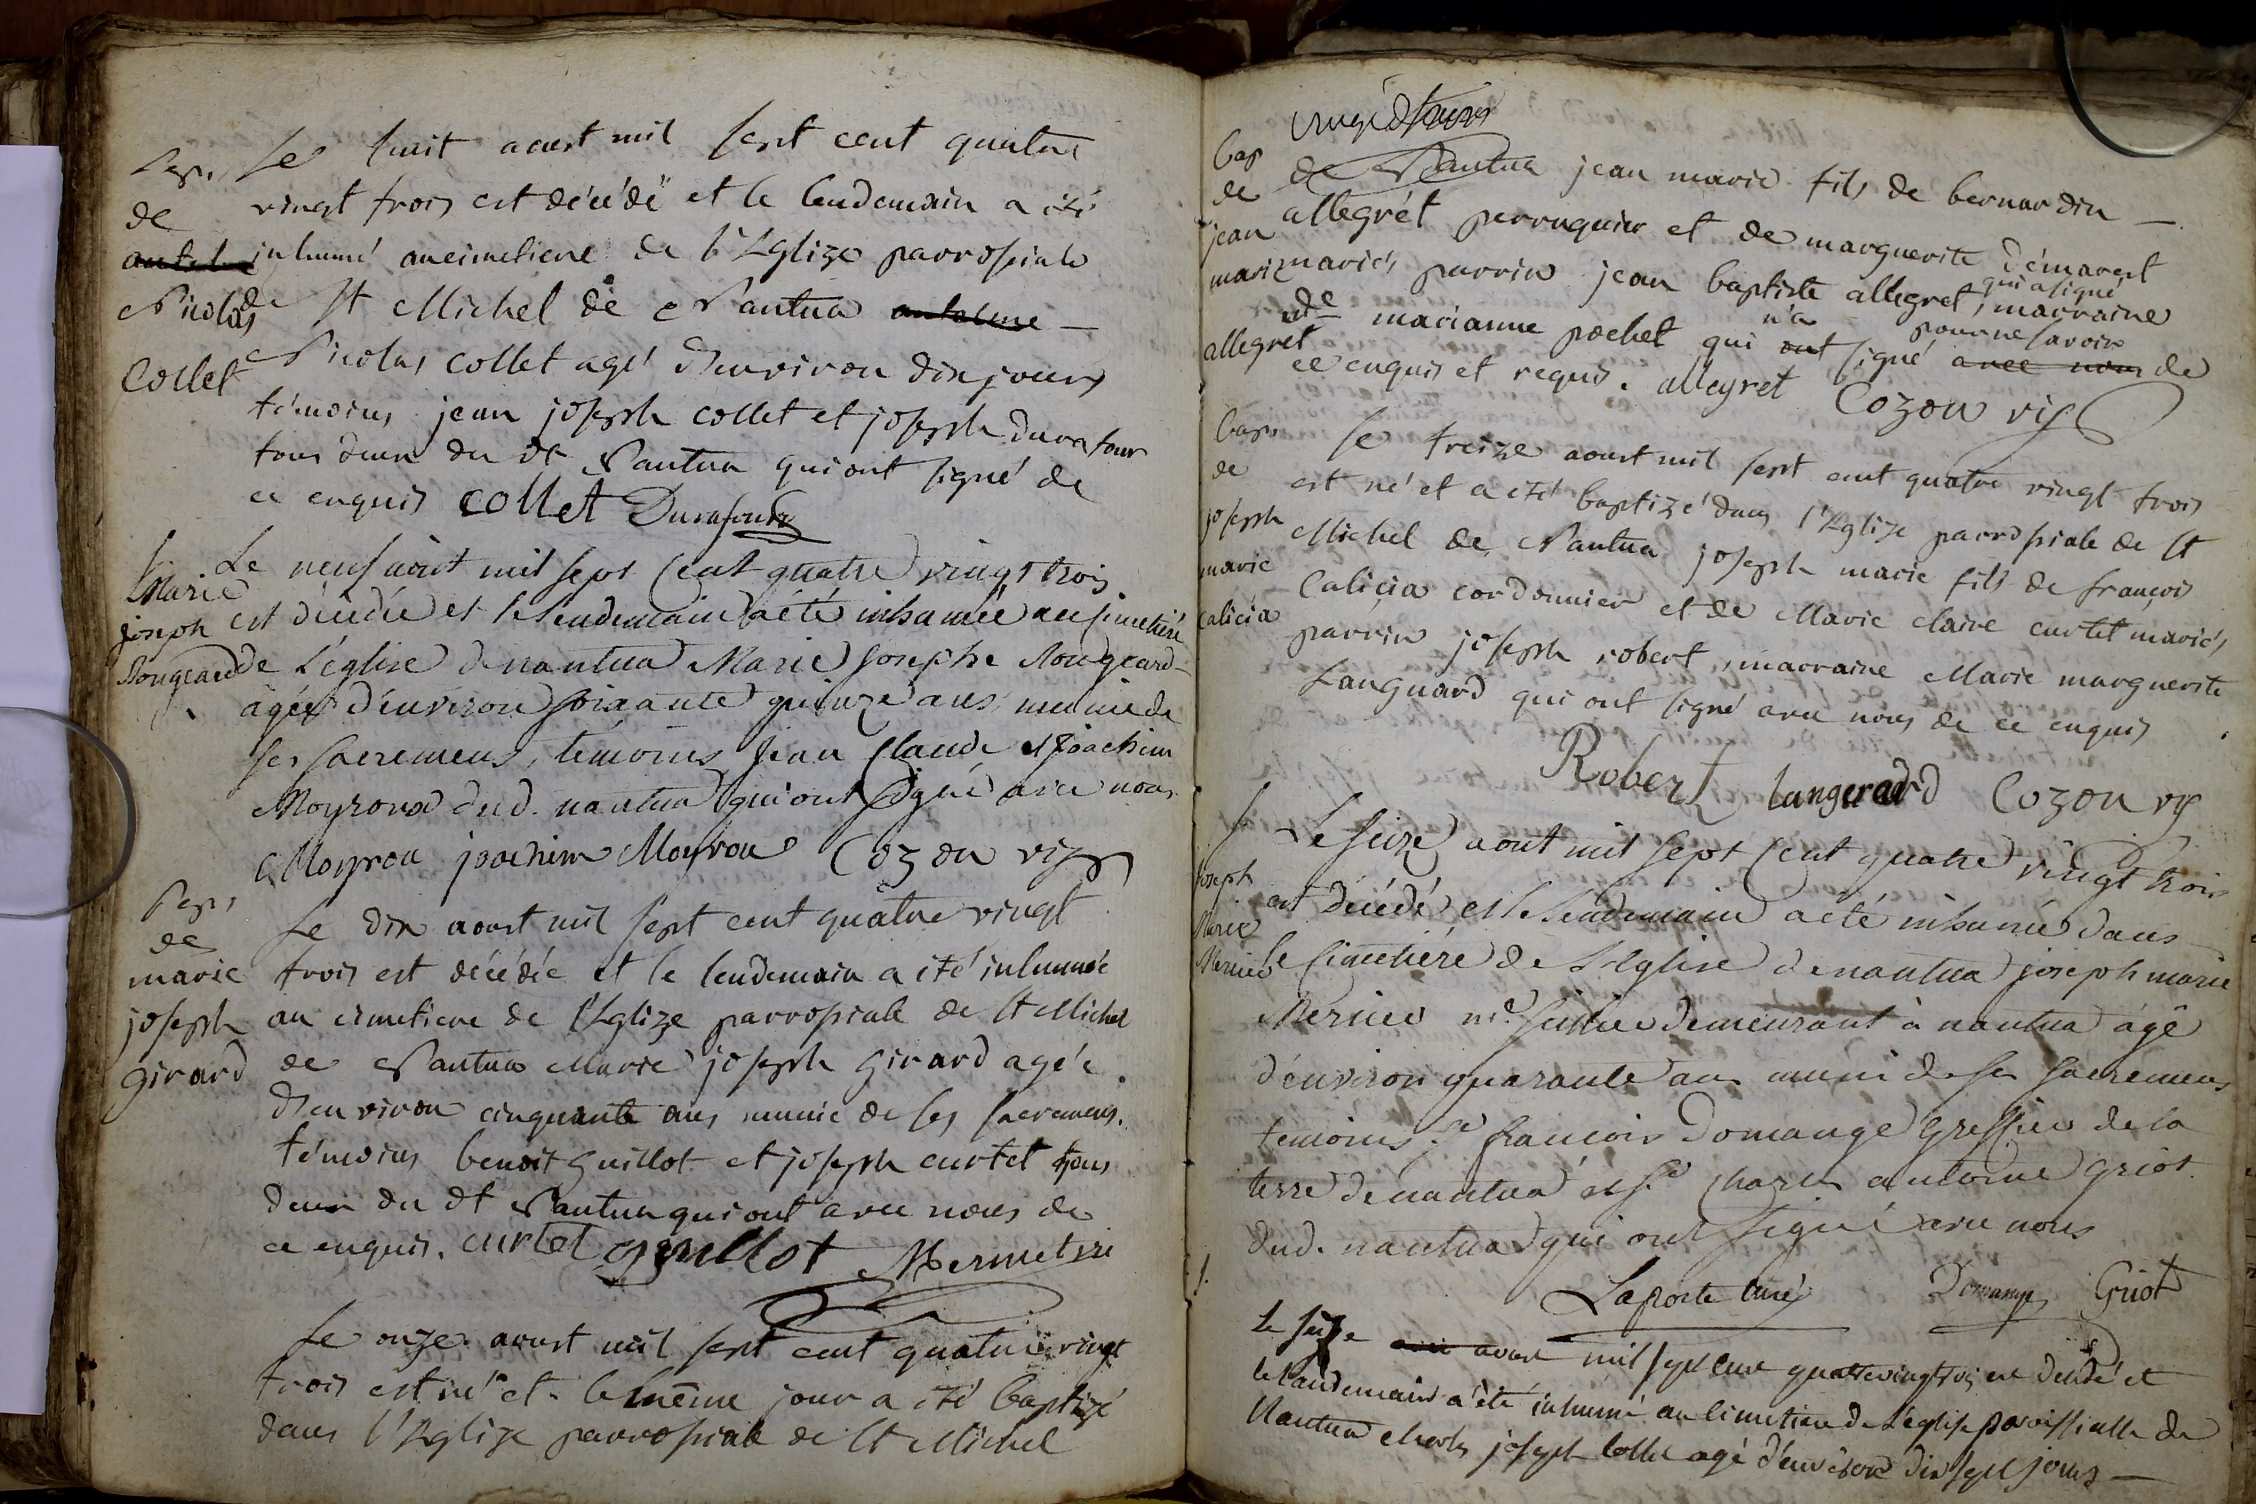 Sep.
de
antelme
Nicolas
Collet
Le huit aoust mil sept cent quatre
vingt trois est décédé et le lendemain a été
inhumé au cimetiere de l'Eglize parrossiale
de St Michel de Nantua antelme
Nicolas collet agé d'environ dix jours
témoins jean joseph collet et joseph durafour
tous deux du dt Nantua qui ont signé de
ce enquis collet Durafour
S.
Marie
joseph
Rougeard
Le neuf aoùt mil sept cent quatre vingt trois
est décédée et le lendemain a été inhumée au cimetiére
de l'église de nantua Marie Josephe Rougeard
agée d'environ soixante quinze ans, munie de
ses sacremens, temoins Jean Claude et Joachim
Moyroux dud. nantua qui ont signé avec nous
Moyrou joachim Moyrou Cozon vic
Sep.
de
marie
joseph
girard
Le dix aoust mil sept cent quatre vingt
trois est décédée et le lendemain a été inhumée
au cimetiere de l'Eglize parrossiale de St Michel
de Nantua Marie joseph girard agée
d'environ cinquante ans munie de ses sacremens.
témoins benoit guillot et joseph curtet tous
deux du dt Nantua qui ont avec nous de
ce enquis. curtet guillot Mermet vic
Le onze aoust mil sept cent quatre vingt
trois est né et le même jour a été baptizé
dans l'Eglize parrossiale de St Michel
bap
de
jean
marie
allegret
de Nantua jean marie fils de bernardin
allegrét perruquier et de marguerite démarest
mariés, parrin jean baptiste allegret, qui a signé marraine
dde marianne pochet qui ont n'a signé avec nous pour ne savoir de
ce enquis et requis. allegret Cozon vic
bap.
de
joseph
marie
Calicia
Le treize aoust mil sept cent quatre vingt trois
est né et a été baptizé dans l'Eglize parrossiale de St
Michel de Nantua joseph marie fils de françois
Calicia cordonnier et de Marie claire curtet mariés,
parrin joseph robert, marraine Marie marguerite
Languard qui ont signé avec nous de ce enquis
Robert langerard Cozon vic
S.
joseph
Marie
Mernier
Le seize aout mil sept cent quatre vingt trois
est décédé et le lendemain a été inhumé dans
le cimetiére de l'Eglise de nantua joseph marie
Mernier md. sellier demeurant à nantua agé
d'environ quarante ans muni de ses sacremens
temoins sr. francois Domange greffier de la
terre de nantua et sr. charles antoine griot
dud. nantua qui ont signé avec nous
Laporte curé Domange Griot
S.
le seize aoust mil sept cent quatrevingt trois est décédé et
le landemain a été inhumé au cimetiere de l'église paroissialle de
Nantua charles joseph collet agé d'environ dix sept jours